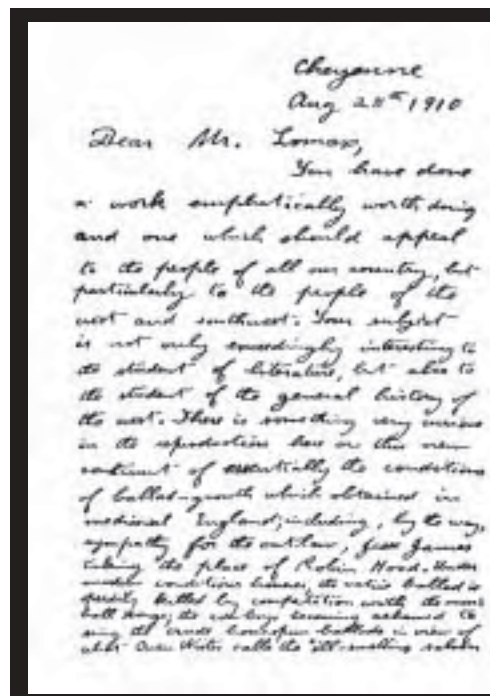 Cheyenne
Aug 28th 1910
Dear Mr. Lomax,
You have done
a work emphatically worth doing
and one which should appeal
to the people of all our country, but
particularly to the people of the
west and southwest. Your subject
is not only exceedingly interesting to
the student of literature, but also to
the student of the general history of
the west. There is something very curious
in the reproduction here on this new
continent of essentially the conditions
of ballad-growth which obtained in
mediaeval England; including, by the way,
sympathy for the outlaw, Jesse James
taking the place of Robin Hood. Under
modern conditions however, the native ballad is
speedily killed by competition with the music
hall songs; the cowboys becoming ashamed to
sing the crude homespun ballads in view of
what Owen Wister calls the "ill-smelling saloon